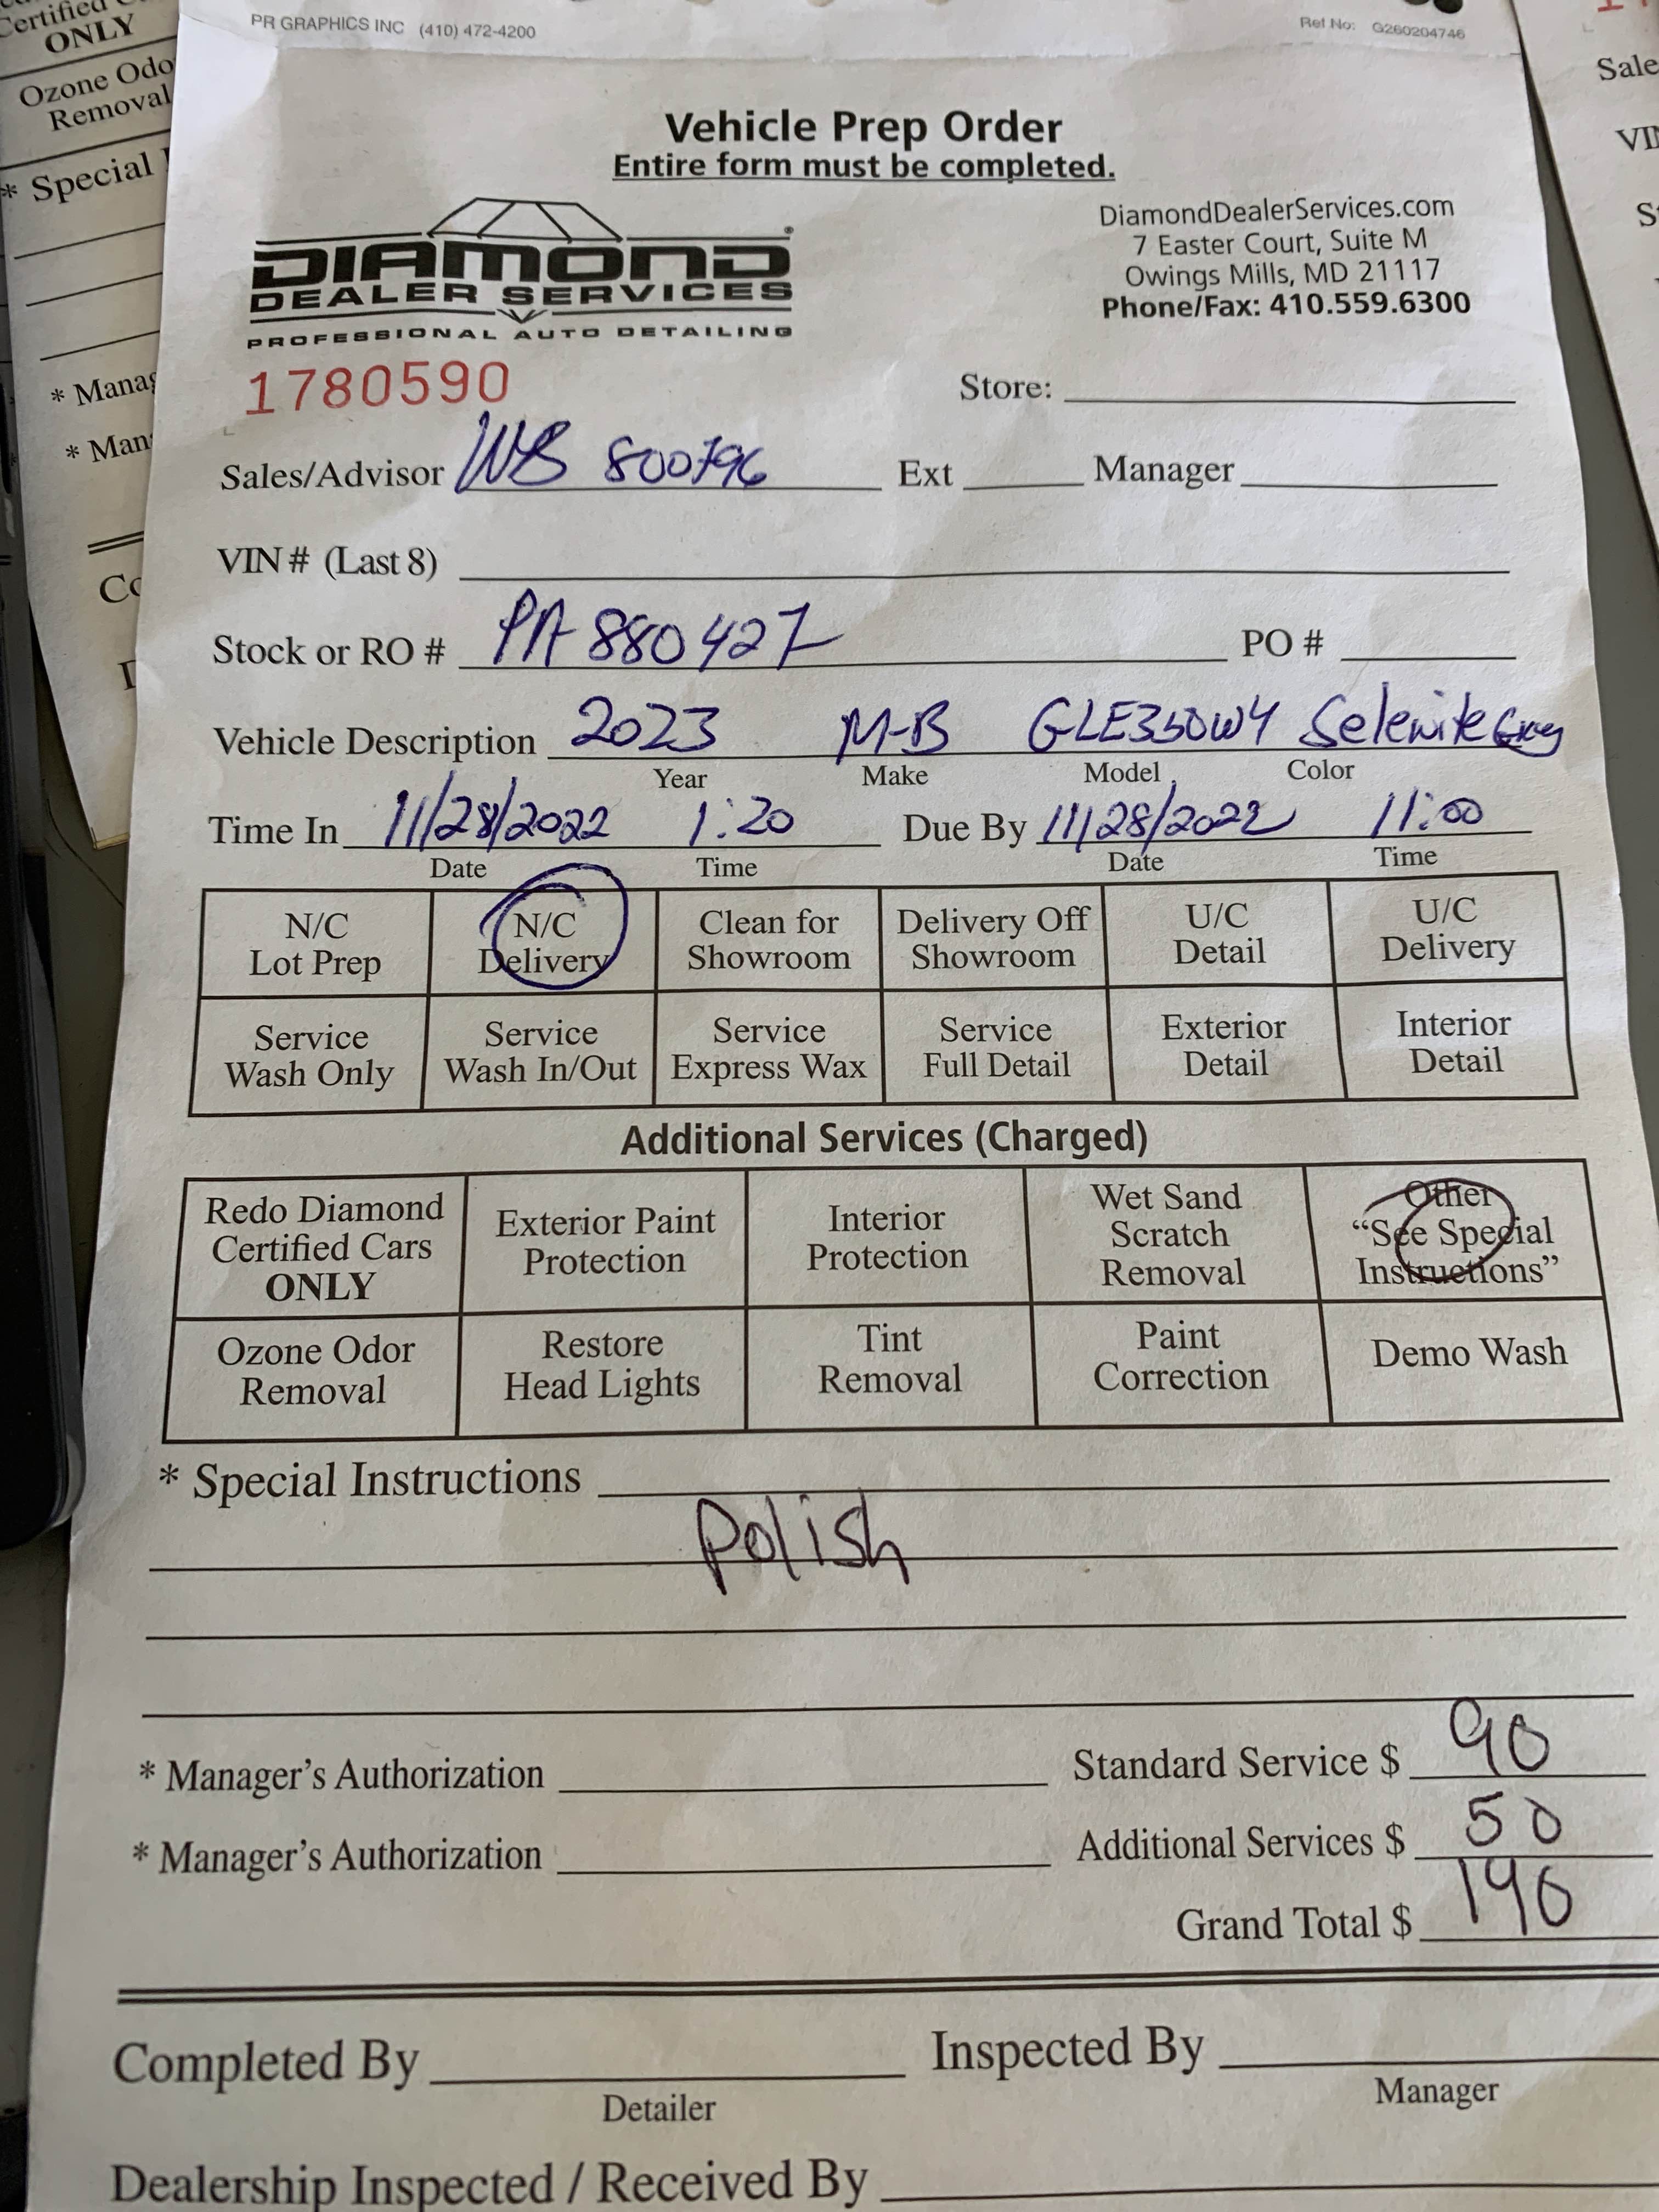 Certified
ONLY
Ozone Odo
Removal
* Special
* Manag
* Man
PR GRAPHICS INC (410) 472-4200
Ref No: G260204746
Sale
Vehicle Prep Order
Entire form must be completed.
DIAMOND
DEALER SERVICES
PROFESSIONAL AUTO DETAILING
DiamondDealerServices.com
7 Easter Court, Suite M
Owings Mills, MD 21117
Phone/Fax: 410.559.6300
1780590
Store:
Sales/Advisor 800796 Ext Manager
VIN # (Last 8)
Stock or RO # PA880427 PO #
Vehicle Description 2023 M-B GLE350W4 Selenite Grey
Year Make Model Color
Time In 11/28/2022 1:20 Due By 11/28/2022 11:00
Date Time Date Time
N/C Lot Prep N/C Delivery Clean for Showroom Delivery Off Showroom U/C Detail U/C Delivery
Service Wash Only Service Wash In/Out Service Express Wax Service Full Detail Exterior Detail Interior Detail
Additional Services (Charged)
Redo Diamond Certified Cars ONLY Exterior Paint Protection Interior Protection Wet Sand Scratch Removal Other “See Special Instructions”
Ozone Odor Removal Restore Head Lights Tint Removal Paint Correction Demo Wash
* Special Instructions
Polish
* Manager’s Authorization Standard Service $ 90
* Manager’s Authorization Additional Services $ 50
Grand Total $ 140
Completed By Inspected By
Detailer Manager
Dealership Inspected / Received By